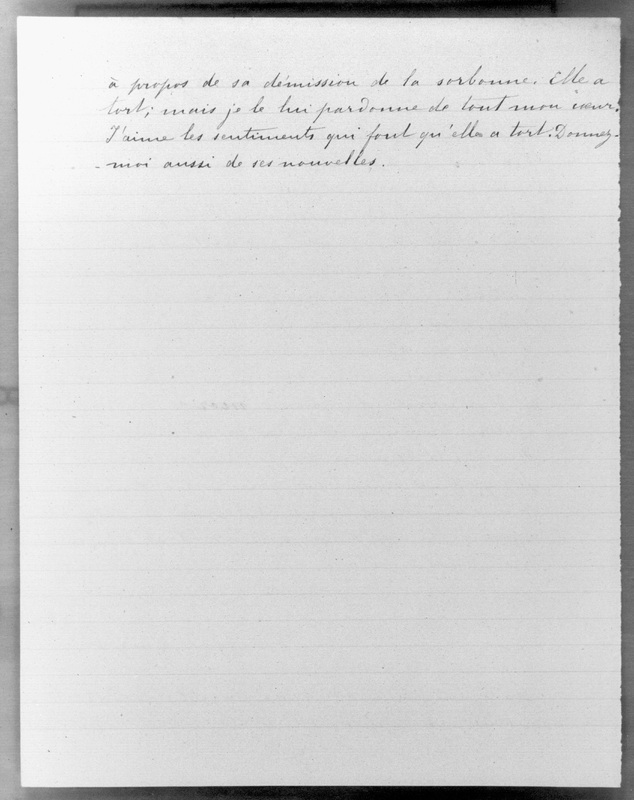 à propos de sa démission de la sorbonne. Elle a
tort; mais je le lui pardonne de tout mon cœur.
J'aime les sentiments qui font qu'elle a tort. Donnez-
-moi aussi de ses nouvelles.